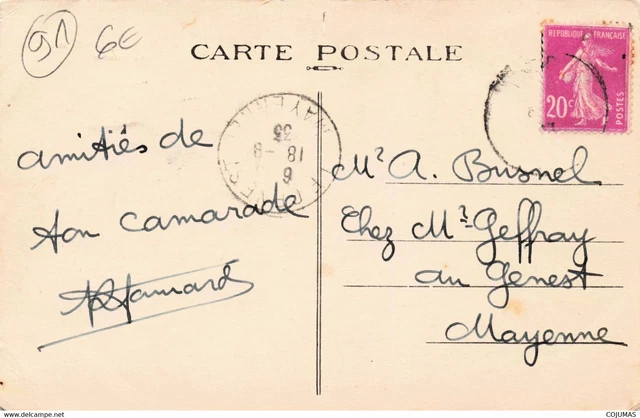 91 6€
CARTE POSTALE
REPUBLIQUE FRANÇAISE
20c
POSTES
MAYENNE
35
18 -8
6
amitiés de
ton camarade
Mr A. Busnel
Chez Mr Geffray
au Genest
Mayenne
www.delcampe.net
COJUMAS